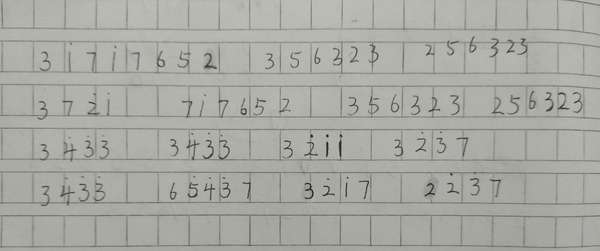 3 i̇ 7 i̇ 7 6 5 2 3 5 6 3 2 3 2 5 6 3 2 3
3 7 2̇ i̇ 7 i̇ 7 6 5 2 3 5 6 3 2 3 2 5 6 3 2 3
3 4̇ 3̇ 3̇ 3 4̇ 3̇ 3̇ 3 2̇ i̇ i̇ 3 2̇ 3̇ 7
3 4̇ 3̇ 3̇ 6 5̇ 4̇ 3̇ 7 3 2̇ i̇ 7 2 2̇ 3̇ 7